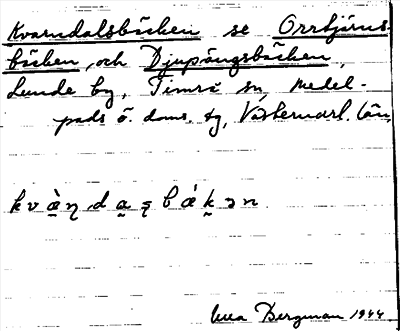 Kvarndalsbäcken se Orrtjärns-
bäcken, och Djupängsbäcken,
Lunde by, Timrå sn, Medel-
pads ö. doms. tg, Västernorrl. län
kvàṇdaṣbák̬ən
Bergman 1944